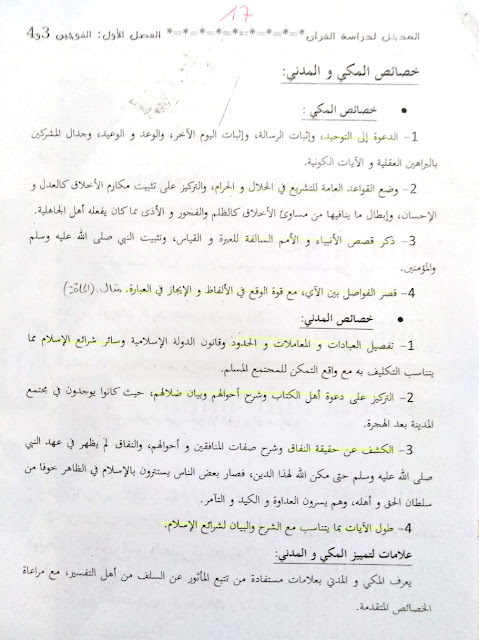 17
المدخل لدراسة القرآن *=*=*=*=*=*=*=*=* الفصل الأول: الفوجين 3و4
خصائص المكي و المدني:
• خصائص المكي :
1- الدعوة إلى التوحيد، وإثبات الرسالة، وإثبات اليوم الآخر، والوعد و الوعيد، وجدال المشركين
بالبراهين العقلية و الآيات الكونية.
2- وضع القواعد العامة للتشريع في الحلال و الحرام، والتركيز على تثبيت مكارم الأخلاق كالعدل و
الإحسان، وإبطال ما ينافيها من مساوئ الأخلاق كالظلم والفجور و الأذى مما كان يفعله أهل الجاهلية.
3- ذكر قصص الأنبياء و الأمم السالفة للعبرة و القياس، وتثبيت النبي صلى الله عليه وسلم
والمؤمنين.
4- قصر الفواصل بين الآي، مع قوة الوقع في الألفاظ و الإيجاز في العبارة.
• خصائص المدني:
1- تفصيل العبادات و المعاملات و الحدود وقانون الدولة الإسلامية وسائر شرائع الإسلام مما
يتناسب التكليف به مع واقع التمكن للمجتمع المسلم.
2- التركيز على دعوة أهل الكتاب وشرح أحوالهم وبيان ضلالهم، حيث كانوا يوجدون في مجتمع
المدينة بعد الهجرة.
3- الكشف عن حقيقة النفاق وشرح صفات المنافقين و أحوالهم، والنفاق لم يظهر في عهد النبي
صلى الله عليه وسلم حتى مكن الله لهذا الدين، فصار بعض الناس يستترون بالإسلام في الظاهر خوفا من
سلطان الحق و أهله، وهم يسرون العداوة و الكيد و التآمر.
4- طول الآيات بما يتناسب مع الشرح والبيان لشرائع الإسلام.
علامات لتمييز المكي و المدني:
يعرف المكي و المدني بعلامات مستفادة من تتبع المأثور عن السلف من أهل التفسير، مع مراعاة
الخصائص المتقدمة.